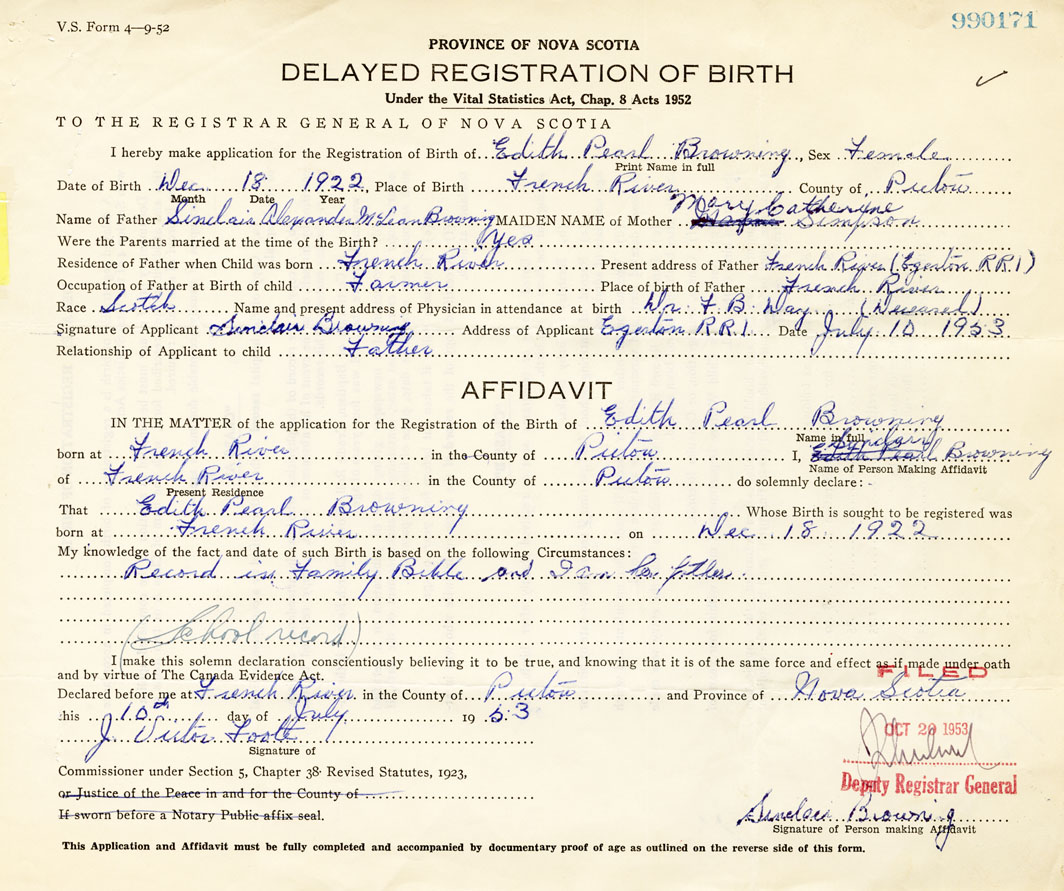 V.S. Form 4—9-52
990171
PROVINCE OF NOVA SCOTIA
DELAYED REGISTRATION OF BIRTH
Under the Vital Statistics Act, Chap. 8 Acts 1952
TO THE REGISTRAR GENERAL OF NOVA SCOTIA
I hereby make application for the Registration of Birth of Edith Pearl Browning, Sex Female
Print Name in full
Date of Birth Dec 18 1922, Place of Birth French River County of Pictou
Month Date Year
Mary Catheryne
Name of Father Sinclair Alexander McLean Browning MAIDEN NAME of Mother Simpson
Were the Parents married at the time of the Birth? Yes
Residence of Father when Child was born French River Present address of Father French River (Egerton R.R.1)
Occupation of Father at Birth of child Farmer Place of birth of Father French River
Race Scotch Name and present address of Physician in attendance at birth Dr. F. B. Day (Deceased)
Signature of Applicant Sinclair Browning Address of Applicant Egerton R.R.1 Date July 10 1953
Relationship of Applicant to child Father
AFFIDAVIT
IN THE MATTER of the application for the Registration of the Birth of Edith Pearl Browning
Name in full
born at French River in the County of Pictou I, Edith Pearl Browning
Name of Person Making Affidavit
of French River in the County of Pictou do solemnly declare: -
Present Residence
That Edith Pearl Browning Whose Birth is sought to be registered was
born at French River on Dec 18 1922
My knowledge of the fact and date of such Birth is based on the following Circumstances:
Record in Family Bible and I am her father.
(School record)
I make this solemn declaration conscientiously believing it to be true, and knowing that it is of the same force and effect as if made under oath
and by virtue of The Canada Evidence Act.
FILED
Declared before me at French River in the County of Pictou and Province of Nova Scotia
this 10th day of July 1953
J. Victor Foote
Signature of
OCT 20 1953
Commissioner under Section 5, Chapter 38 Revised Statutes, 1923,
Deputy Registrar General
or Justice of the Peace in and for the County of
If sworn before a Notary Public affix seal.
Sinclair Browning
Signature of Person making Affidavit
This Application and Affidavit must be fully completed and accompanied by documentary proof of age as outlined on the reverse side of this form.